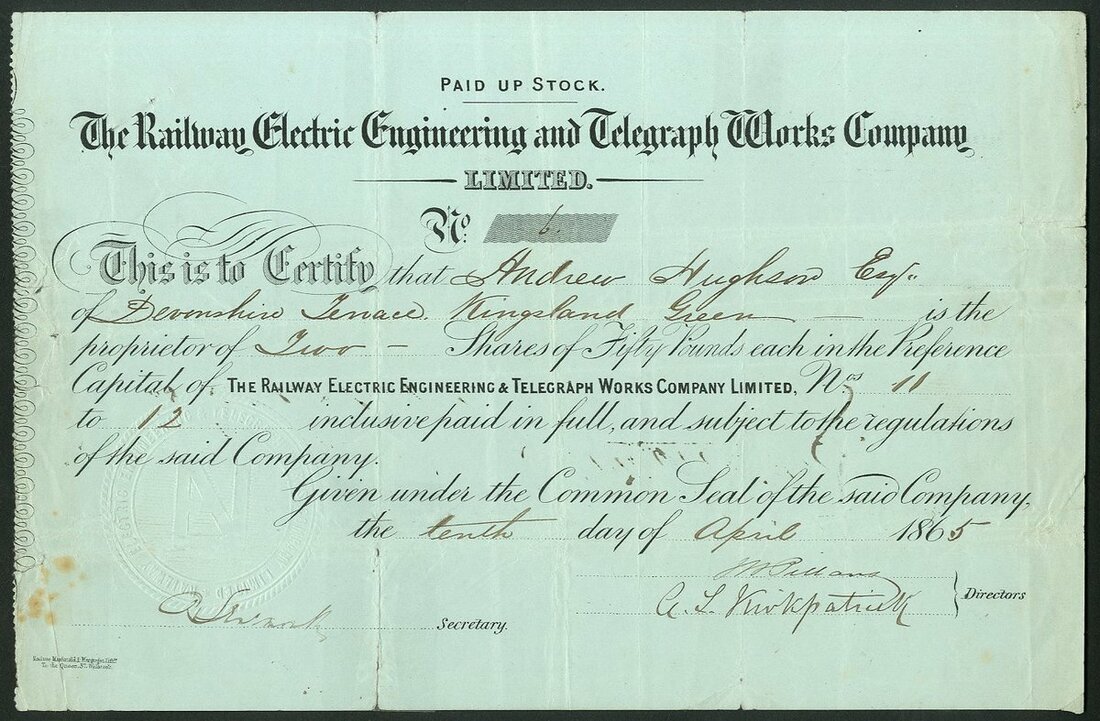 PAID UP STOCK.
The Railway Electric Engineering and Telegraph Works Company
LIMITED.
No. 6.
This is to Certify that Andrew Hughson Esqr.
of Devonshire Terrace Kingsland Green — is the
proprietor of Two — Shares of Fifty Pounds each in the Preference
Capital of THE RAILWAY ELECTRIC ENGINEERING & TELEGRAPH WORKS COMPANY LIMITED, Nos 11
to 12 inclusive paid in full, and subject to the regulations
of the said Company.
Given under the Common Seal of the said Company,
the tenth day of April 1865
A. L. Kirkpatrick
Directors
Secretary.